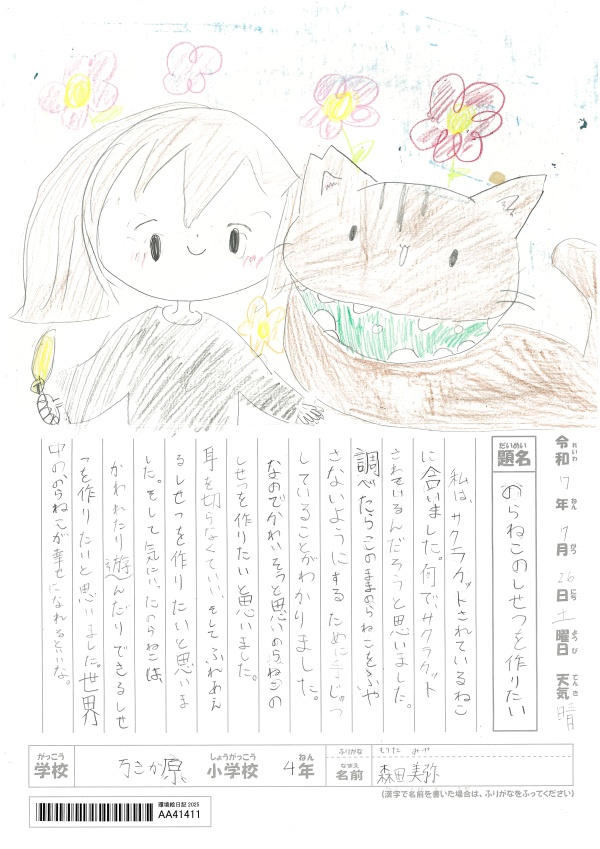 令和7年7月26日土曜日 天気 晴
れいわ ねん がつ にち ようび てんき
だいめい
題名 のらねこのしせつを作りたい
私は、サクラカットされているねこ
に合いました。何で、サクラカット
されているんだろうと思いました。
調べたらこのままのらねこをふや
さないようにするために手じゅつ
していることがわかりました。
なのでかわいそうと思いのらねこの
しせつを作りたいと思いました。
耳を切らなくていい、そしてふれあえ
るしせつを作りたいと思いま
した。そして気にいったのらねこは
かわれたり遊んだりできるしせ
つを作りたいと思いました。世界
中ののらねこが幸せになれるといいな。
がっこう しょうがっこう ねん ふりがな もりた みや
学校 小学校 4年 なまえ 名前 森田美弥
(漢字で名前を書いた場合は、ふりがなをふってください)
環境絵日記 2025
AA41411